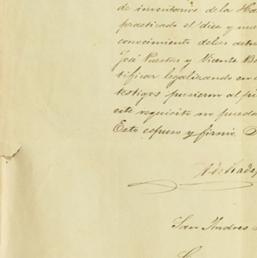 de inventarios de la Ha
practicado el dia y
conocimiento de los
José Puertas y Vicente
tificar legalizando en
testigos pusieron al pi
este requisito no pueda
Esto espuso y firmó D
San Andres